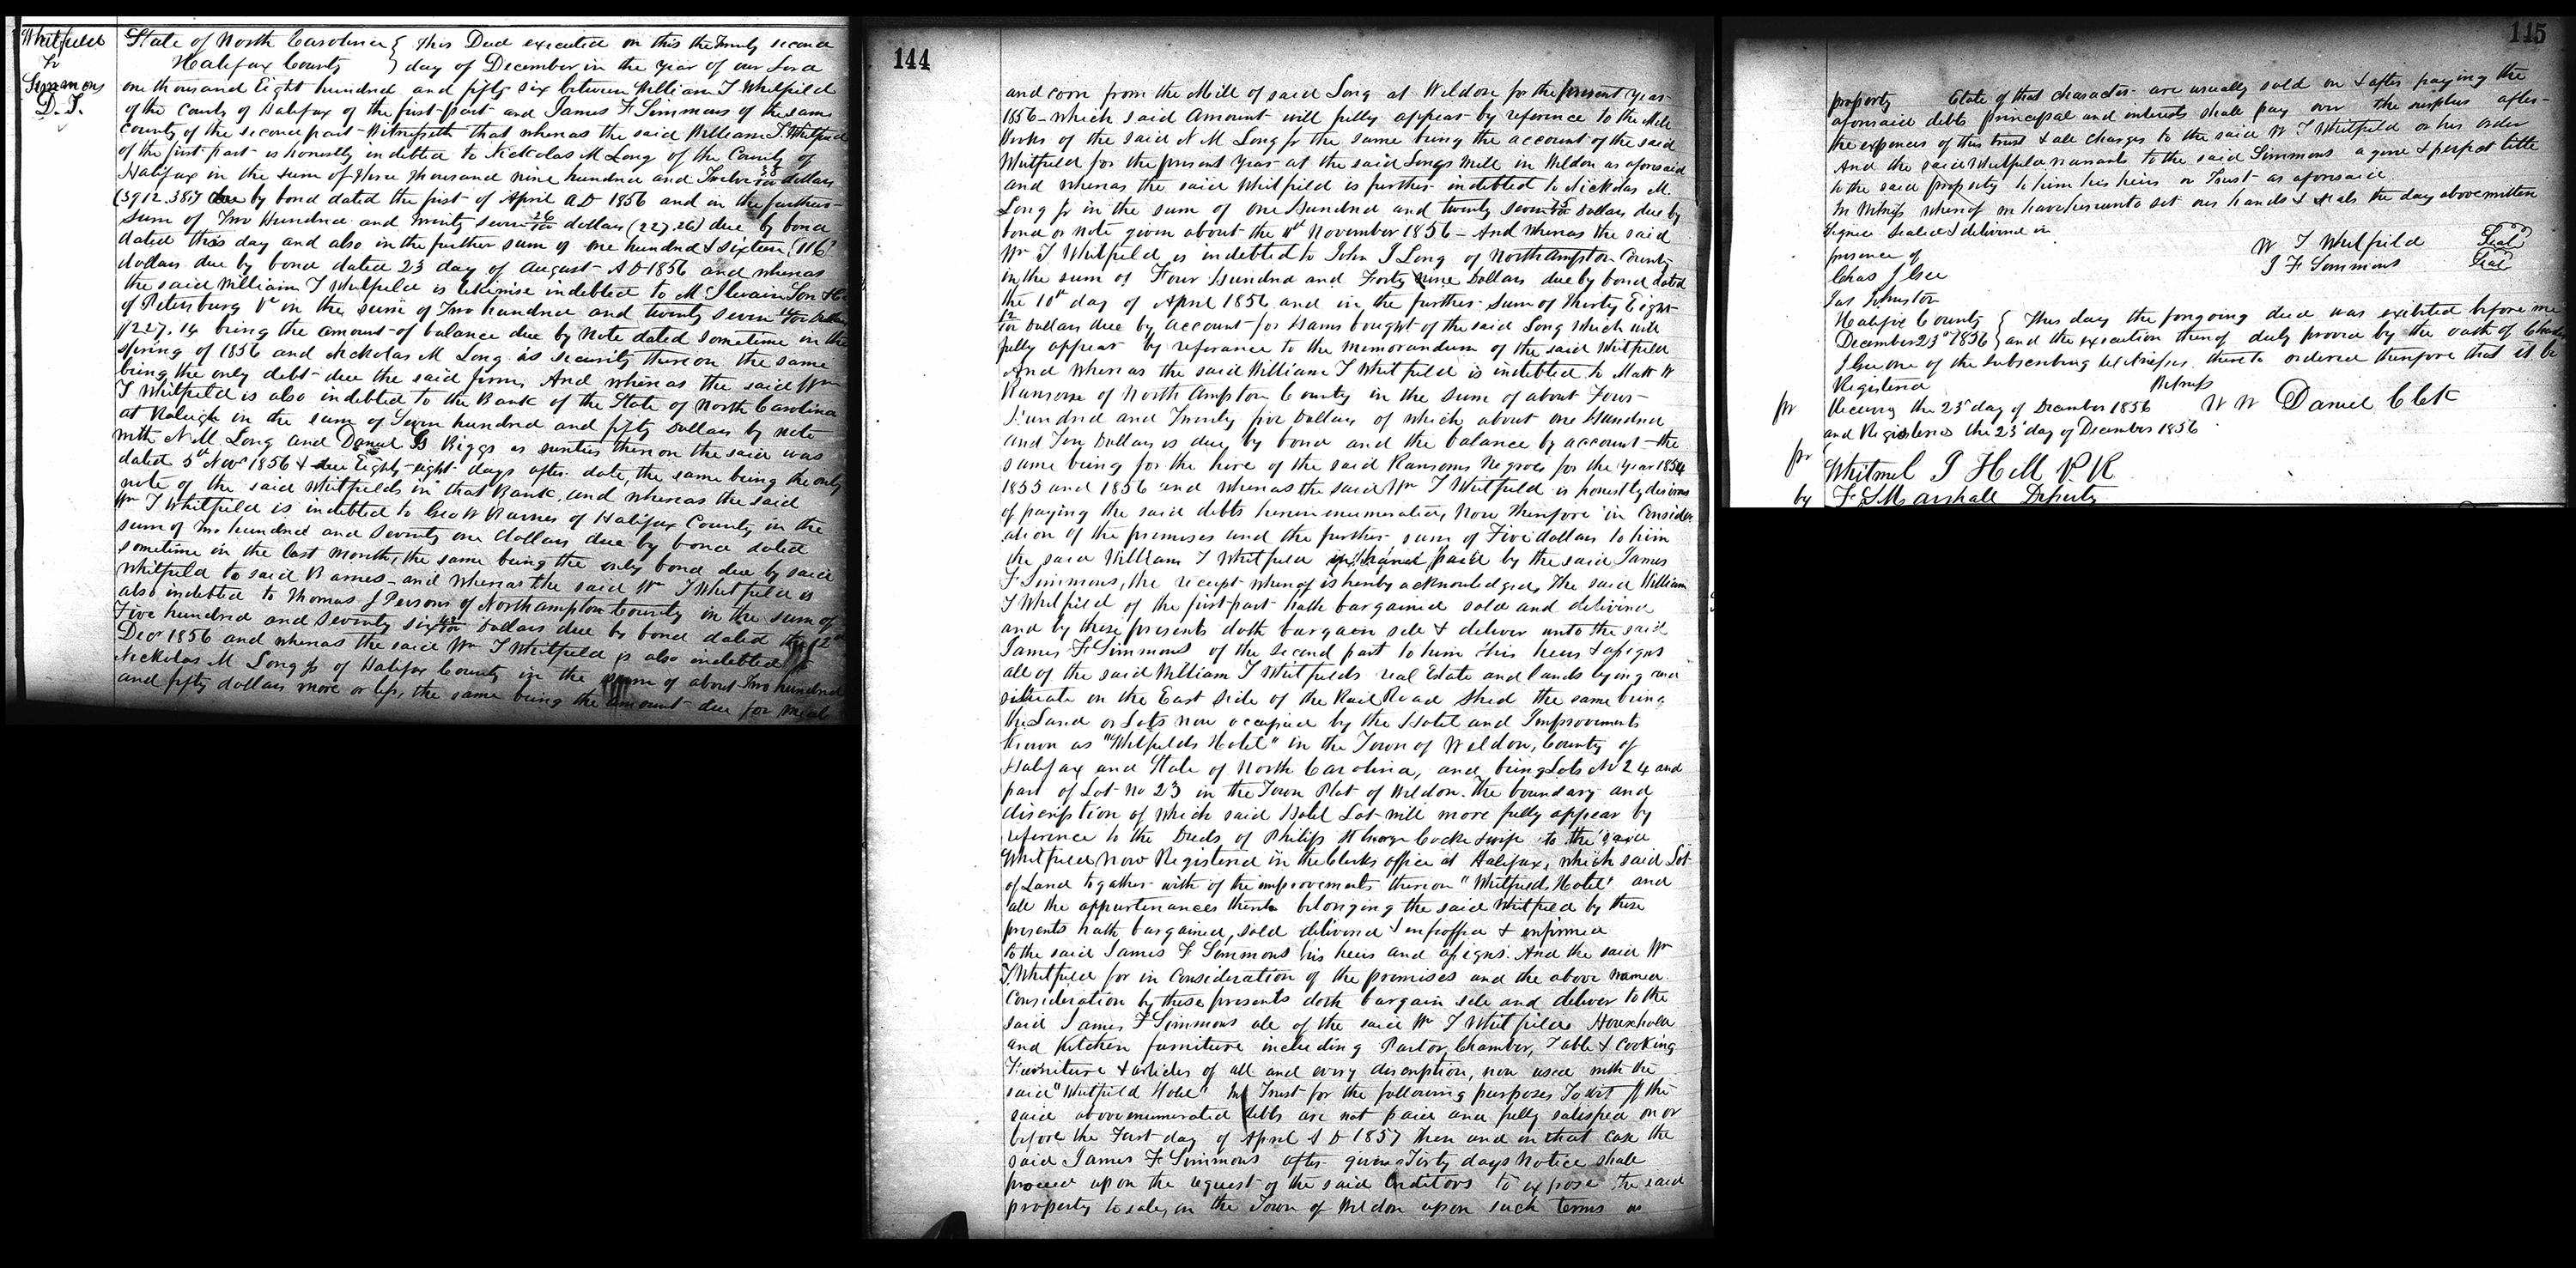 Whitfield
To
Simmons
D. T.
State of North Carolina { This Deed executed on this the Twenty second
Halifax County } day of December in the year of our Lord
one thousand Eight hundred and fifty six between William T Whitfield
of the County of Halifax of the first part and James F Simmons of the same
County of the second part Witnesseth that whereas the said William T. Whitfield
of the first part is honestly indebted to Nickolas M Long of the County of
Halifax in the sum of Three Thousand nine hundred and Twelve 38/100 dollars
(3912.38) due by bond dated the first of April AD 1856 and in the further
sum of Two Hundred and twenty seven 26/100 dollars (227.26) due by bond
dated this day and also in the further sum of one hundred & sixteen (116)
dollars due by bond dated 23 day of August AD 1856 and whereas
the said William T Whitfield is likewise indebted to McIlwain Son & Co
of Petersburg Va in the sum of Two hundred and twenty seven 14/100 Dollars
$227.14 being the amount of balance due by Note dated sometime in the
Spring of 1856 and Nickolas M Long is security thereon the same
being the only debt due the said firm, And whereas the said Wm
T Whitfield is also indebted to the Bank of the State of North Carolina
at Raleigh in the sum of Seven hundred and fifty Dollars by note
with N M Long and Daniel B Riggs as sureties thereon the said was
dated 5th Novr 1856 & due Eighty-eight days after date, the same being the only
note of the said Whitfields in that Bank, and whereas the said
Wm T Whitfield is indebted to Geo W Barnes of Halifax County in the
sum of two hundred and seventy one dollars due by bond dated
sometime in the last month, the same being the only bond due by said
Whitfield to said Barnes - and whereas the said Wm T Whitfield is
also indebted to Thomas J Persons of Northampton County in the sum of
Five hundred and seventy six dollars due by bond dated the 12th
Decr 1856 and whereas the said Wm T Whitfield is also indebted to
Nickolas M Long Jr of Halifax County in the sum of about Two hundred
and fifty dollars more or less, the same being the amount due for meal
144
and corn from the Mill of said Long at Weldon for the present year
1856 - which said Amount will fully appear by reference to the Mill
Books of the said N M Long Jr the same being the account of the said
Whitfield for the present Year at the said Longs Mill in Weldon as aforesaid
and whereas the said Whitfield is further indebted to Nickolas M.
Long Jr in the sum of one Hundred and twenty seven Dollars due by
bond or note given about the November 1856 - And whereas the said
Wm T Whitfield is indebted to John J Long of Northampton County
in the sum of Four Hundred and Forty nine Dollars due by bond dated
the 10th day of April 1856 and in the further sum of Thirty Eight
12/100 Dollars due by account for Hams bought of the said Long which will
fully appear by referance to the memorandum of the said Whitfield
And whereas the said William T Whitfield is indebted to Matt W
Ransom of North Ampton County in the sum of about Four
Hundred and Twenty five Dollars of which about one Hundred
and Ten Dollars is due by bond and the balance by account - the
same being for the hire of the said Ransoms Negroes for the year 1854
1855 and 1856 and whereas the said Wm T Whitfield is honestly desirous
of paying the said debts herein enumerated, Now therefore in Consider
ation of the premises and the further sum of Five dollars to him
the said William T Whitfield in hand paid by the said James
F Simmons, the receipt whereof is hereby acknowledged, The said William
T Whitfield of the first part hath bargained sold and delivered
and by these presents doth bargain sell & deliver unto the said
James F Simmons of the second part to him his heirs & assigns
all of the said William T Whitfields real Estate and lands lying and
situate on the East side of the Rail Road Shed the same being
the Land or Lots now occupied by the Hotel and Improvements
known as "Whitfields Hotel" in the Town of Weldon, County of
Halifax and State of North Carolina, and being Lots No 24 and
part of Lot No 23 in the Town Plat of Weldon. the boundary and
discription of which said Hotel Lot will more fully appear by
reference to the Deeds of Philip St George Cocke & wife to the said
Whitfield now Registered in the Clerks office at Halifax, which said Lot
of Land together with of the improvements thereon "Whitfields Hotel" and
all the appurtenances thereto belonging the said Whitfield by these
presents hath bargained, sold delivered & enfeoffed & confirmed
to the said James F Simmons his heirs and assigns. And the said Wm
T. Whitfield for in Consideration of the premises and the above named
Consideration by these presents doth bargain sell and deliver to the
said James F Simmons all of the said Wm T Whitfields Household
and Kitchen furniture including Parlor, Chamber, Table & Cooking
Furniture & articles of all and every discription, now used with the
said "Whitfield Hotel" In Trust for the following purposes To wit If the
said above enumerated debts are not paid and fully satisfied on or
before the First day of April A D 1857 then and in that case the
said James F Simmons after given Thirty days Notice shall
proceed upon the request of the said Creditors to expose the said
property to sale, in the Town of Weldon upon such terms as
115
property Estate of that character are usually sold on & after paying the
aforesaid debts principal and interests shall pay over the surplus after
the expences of this trust & all charges to the said W T Whitfield or his order
And the said Whitfield warrants to the said Simmons a good & perfect title
to the said property to him his heirs or Trust as aforesaid.
In Witness whereof we have hereunto set our hands & seals the day above written
Signed Sealed & delivered in
presence of
W T Whitfield Seal
J F Simmons Seal
Chas J Gee
Jas Johnston
Halifax County { This day the forgoing deed was exibited before me
December 23rd 1856 } and the execution thereof duly proved by the oath of Charles
J Gee one of the subscribing witnesses thereto ordered therefore that it be
Registered Witness
W W Daniel Clk
Received the 23rd day of December 1856
and Registered the 23rd day of December 1856
Whitmel J Hill P. R.
by F S Marshall Deputy